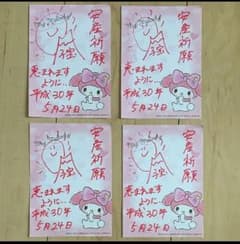 安産祈願
恵まれます
ように…
平成30年
5月24日
安産祈願
恵まれます
ように…
平成30年
5月24日
安産祈願
恵まれます
ように…
平成30年
5月24日
安産祈願
恵まれます
ように…
平成30年
5月24日